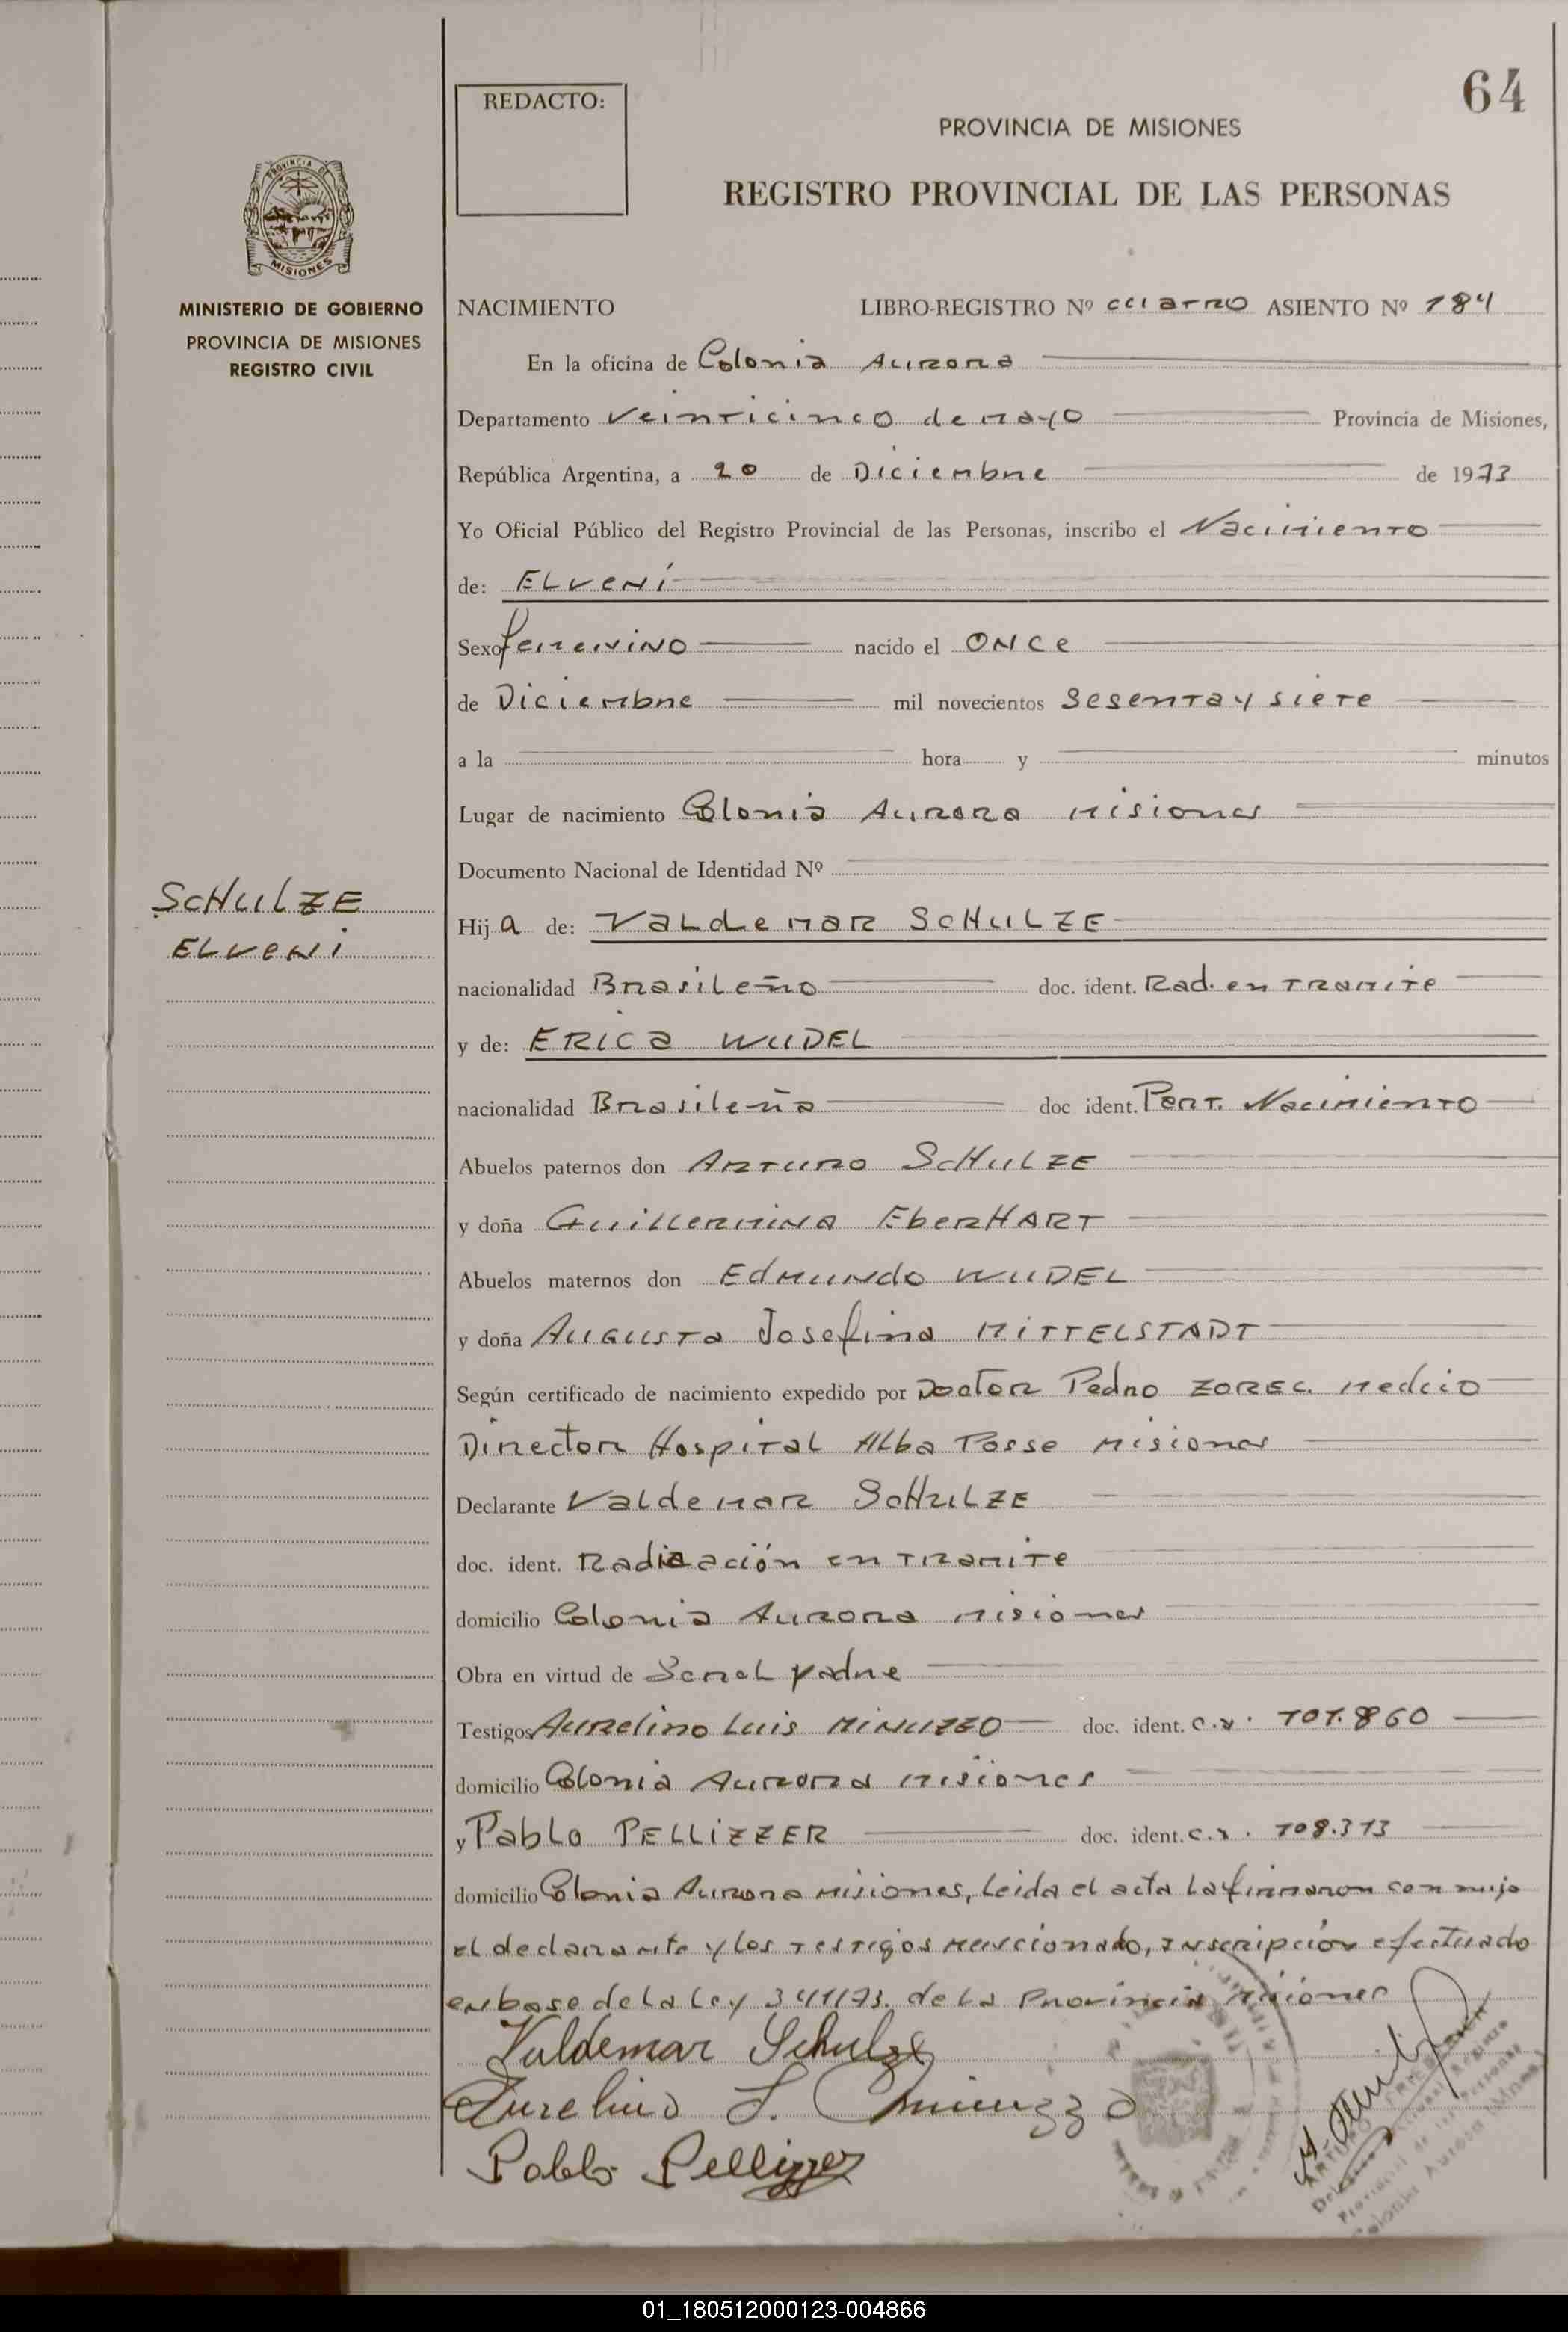 64
REDACTO:
PROVINCIA DE MISIONES
REGISTRO PROVINCIAL DE LAS PERSONAS
PROVINCIA DE
MISIONES
MINISTERIO DE GOBIERNO
PROVINCIA DE MISIONES
REGISTRO CIVIL
NACIMIENTO LIBRO-REGISTRO Nº cuarto ASIENTO Nº 184
En la oficina de Colonia Aurora
Departamento Veinticinco de mayo Provincia de Misiones,
República Argentina, a 20 de Diciembre de 1973
Yo Oficial Público del Registro Provincial de las Personas, inscribo el Nacimiento
de: ELVENÍ
Sexo femenino nacido el ONCE
de Diciembre mil novecientos Sesenta y siete
a la hora y minutos
Lugar de nacimiento Colonia Aurora Misiones
Documento Nacional de Identidad Nº
SCHULZE
ELVENI
Hij a de: VALdemar SCHULZE
nacionalidad Brasileño doc. ident. Rad. en Tramite
y de: ERICA WUDEL
nacionalidad Brasileña doc ident. Part. Nacimiento
Abuelos paternos don Arturo SCHULZE
y doña Guillermina EberHART
Abuelos maternos don Edmundo WUDEL
y doña Augusta Josefina MITTELSTADT
Según certificado de nacimiento expedido por Doctor Pedro ZOREC. Medcio
Director Hospital Alba Posse Misiones
Declarante Valdemar SCHULZE
doc. ident. Radicación en Tramite
domicilio Colonia Aurora Misiones
Obra en virtud de Ser el padre
Testigos Aurelino Luis MINUZZO doc. ident. C.I. 101.860
domicilio Colonia Aurora Misiones
y Pablo PELLIZZER doc. ident. C.I. 108.313
domicilio Colonia Aurora Misiones, Leida el acta la firmaron con migo
el declarante y los testigos mencionado, Inscripción efectuado
en base de la Ley 341/73. de la Provincia Misiones
Valdemar Schulze
Aurelino L. Minuzzo
Pablo Pellizzer
Provincial de las Personas
Colonia Aurora
01_180512000123-004866